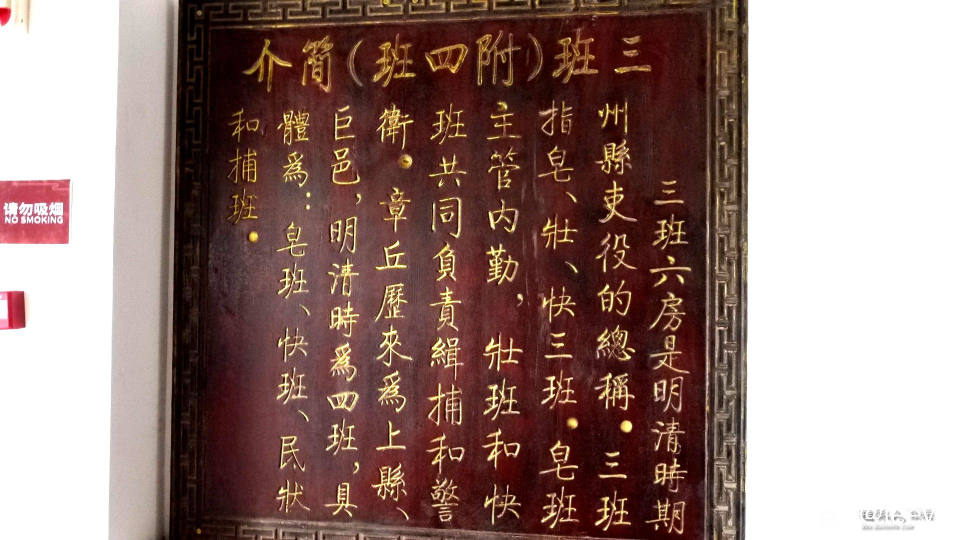 三班(附四班)簡介
三班六房是明清時期
州縣吏役的總稱。三班
指皂、壯、快三班。皂班
主管內勤，壯班和快
班共同負責緝捕和警
衛。章丘歷來為上縣、
巨邑，明清時為四班，具
體為：皂班、快班、民狀
和捕班。
请勿吸烟
NO SMOKING